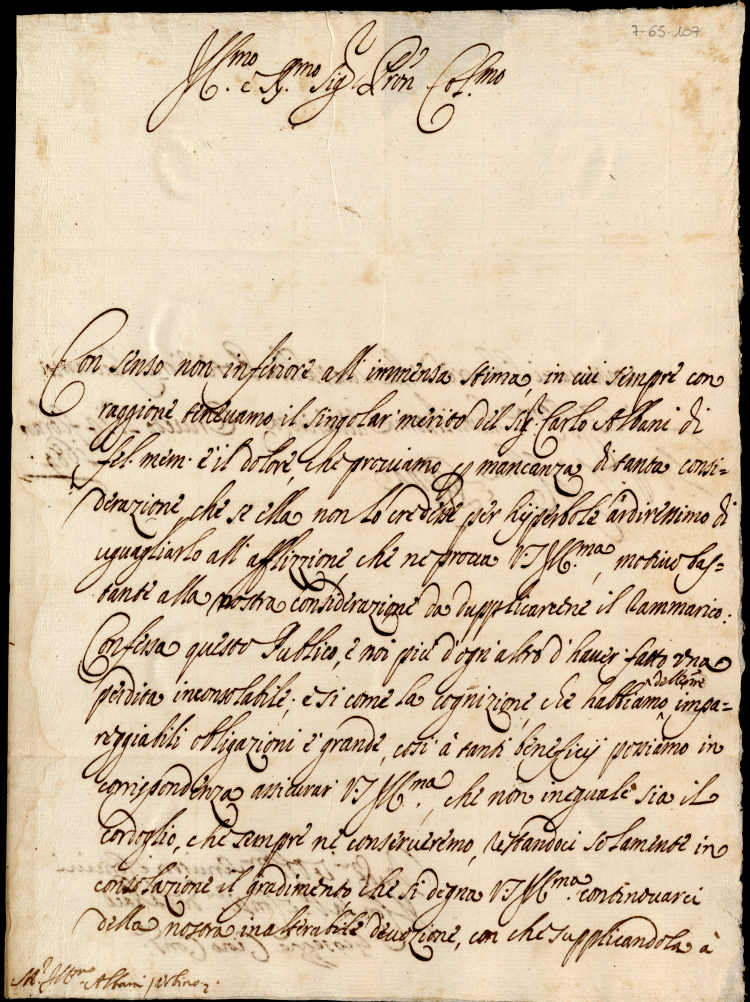 7-65-107
Ill.mo e R.mo Sig.r Pron Col.mo
Con senso non inferiore all' immensa stima, in cui sempre con
raggione tenevamo il singolar merito del Sig.r Carlo Albani di
fel. mem. è il dolore, che proviamo in mancanza di tanta consi=
derazione, che se ella non lo credesse per hijperbole ardiressimo di
uguagliarlo all' afflizzione che ne prova V.S. Ill.ma, motivo bas=
tante alla nostra considerazione da dupplicarcene il rammarico:
Confessa questo Publico, e noi più d'ogn'altro d'haver fatto una
perdita inconsolabile; e si come la cognizione, che habbiamo dell'om.re impa=
reggiabili obligazioni è grande, così à tanti beneficij possiamo in
corrispondenza assicurar V.S. Ill.ma, che non ineguale sia il
cordoglio, che sempre ne conserveremo, restandoci solamente in
consolazione il gradimento, che si degna V.S. Ill.ma continovarci
della nostra inalterabile devozione, con che supplicandola à
M.r Ill.mo Albani Urbino